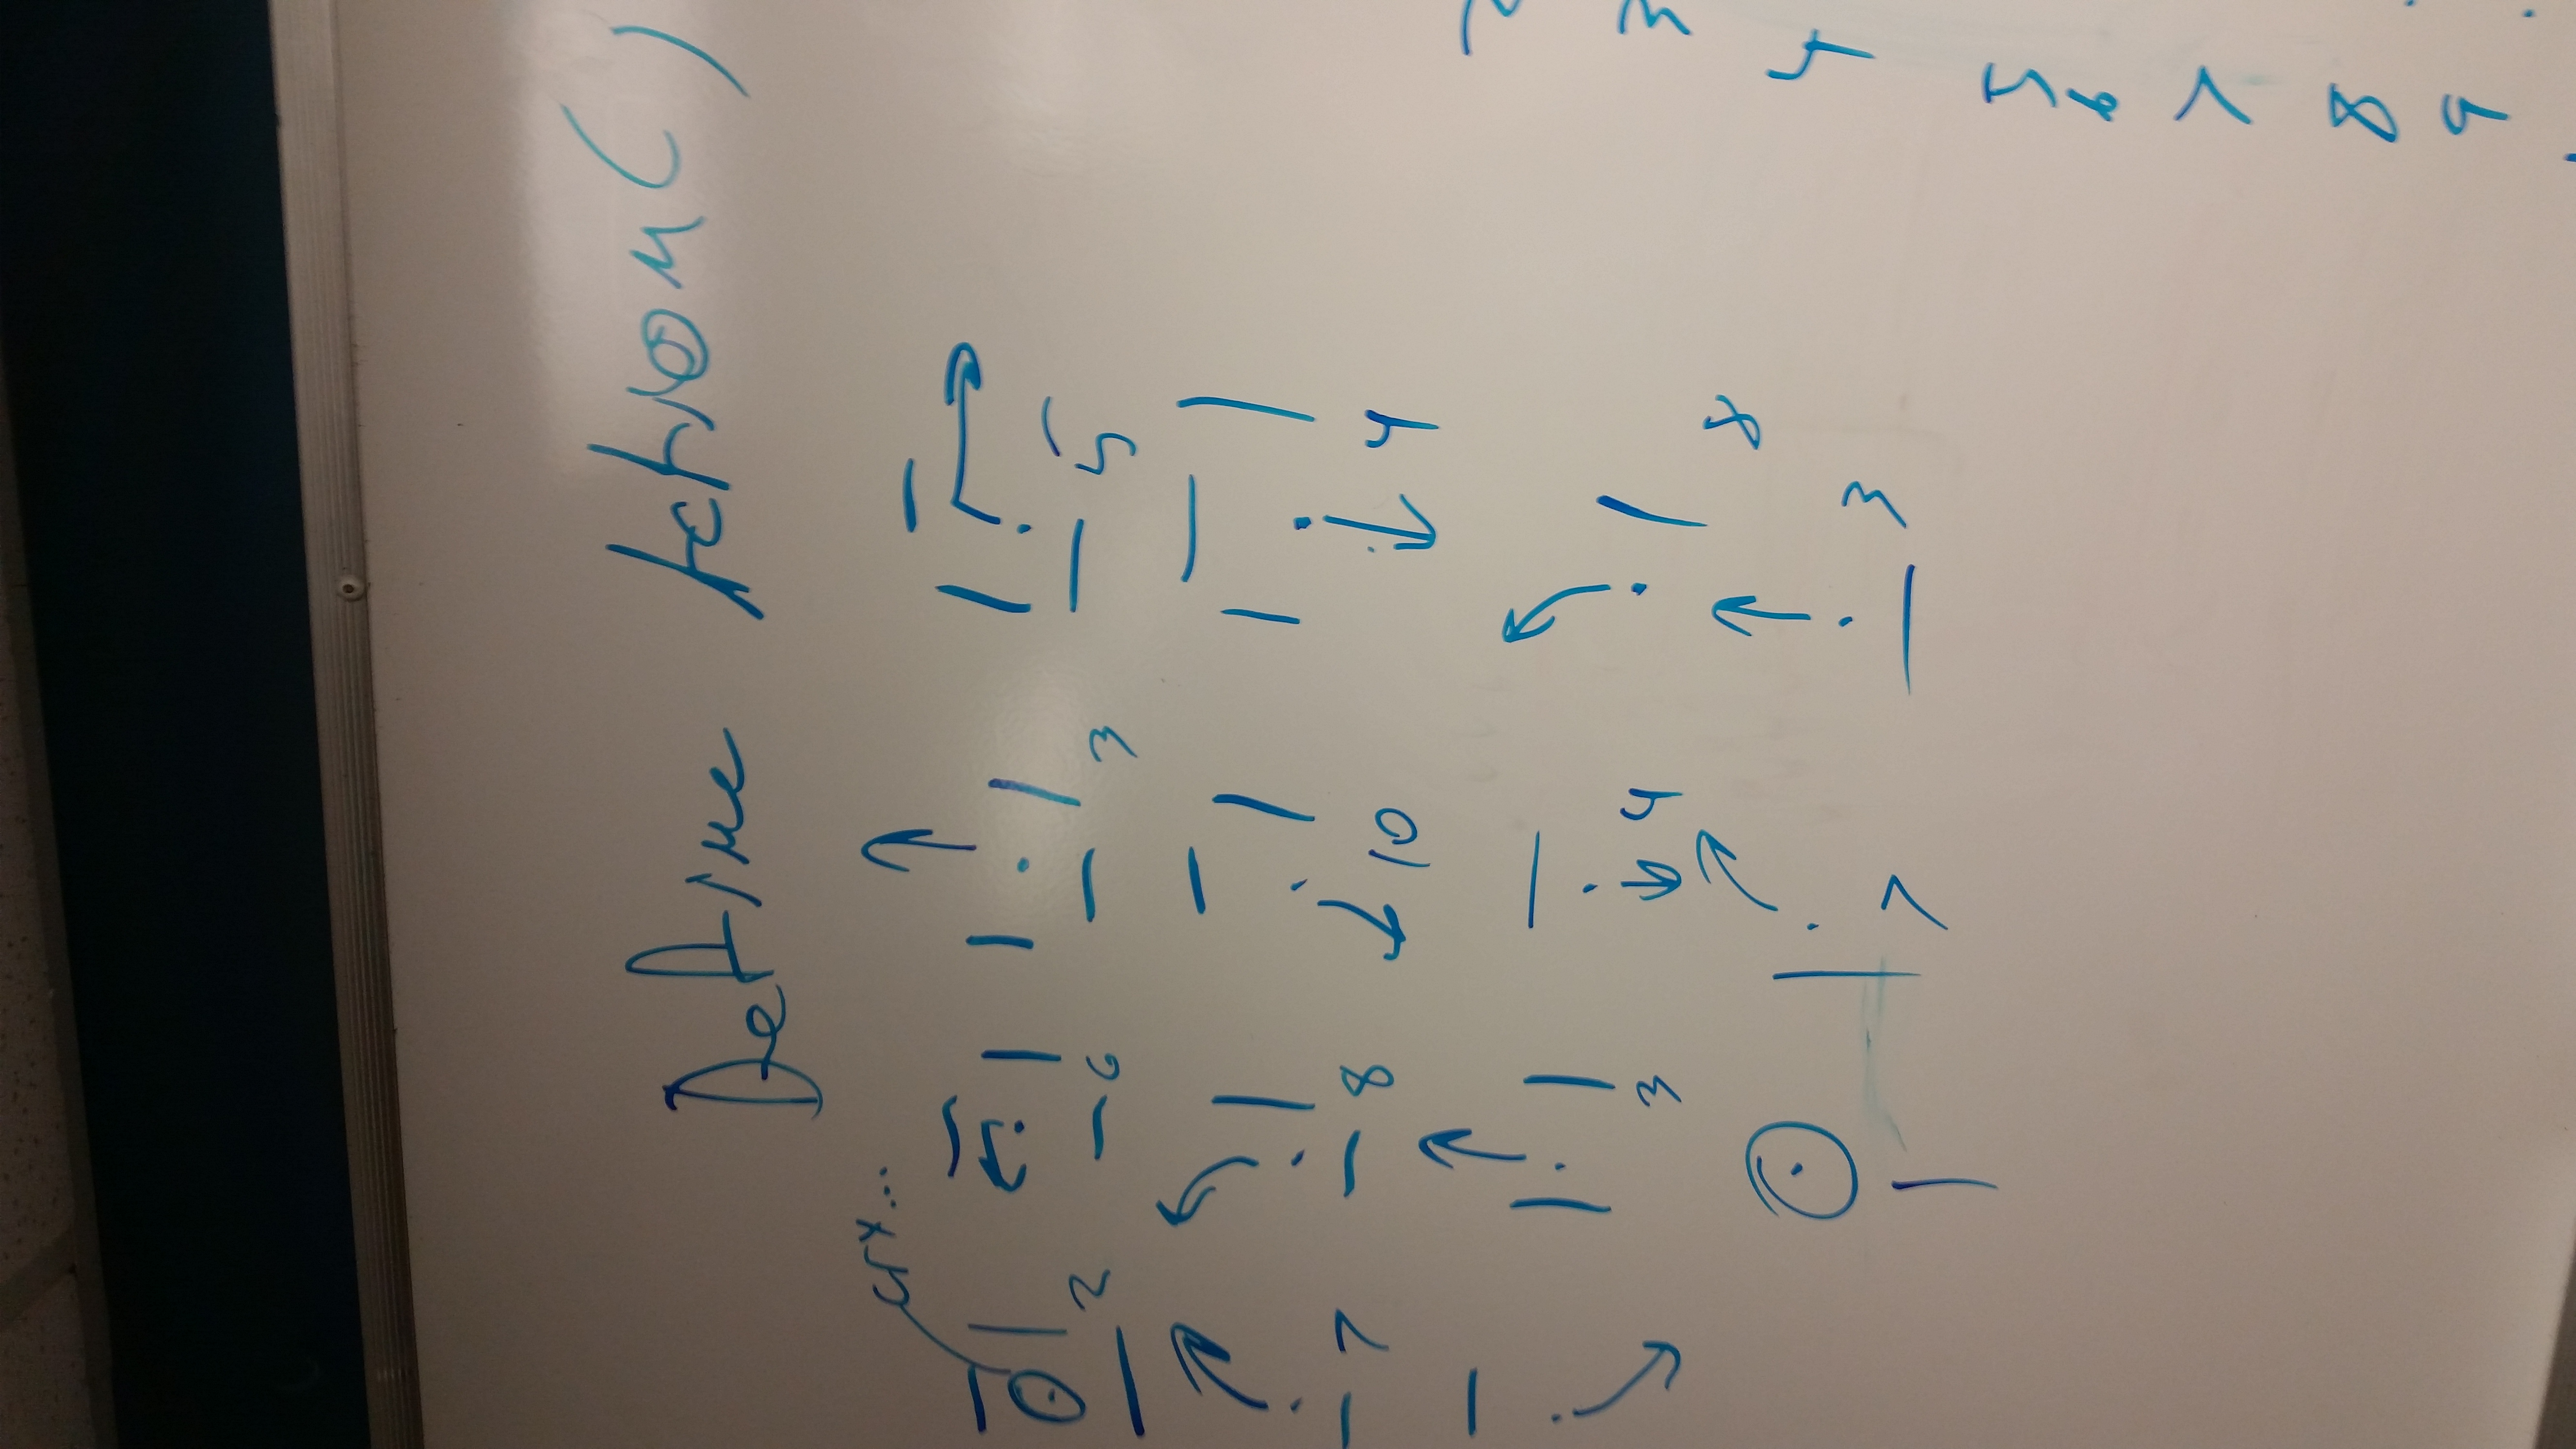 Define Action()
cry...
2 6 3 5
7 8 10 4
3 4 8
1 7 3
3
4
5
6
7
8
9